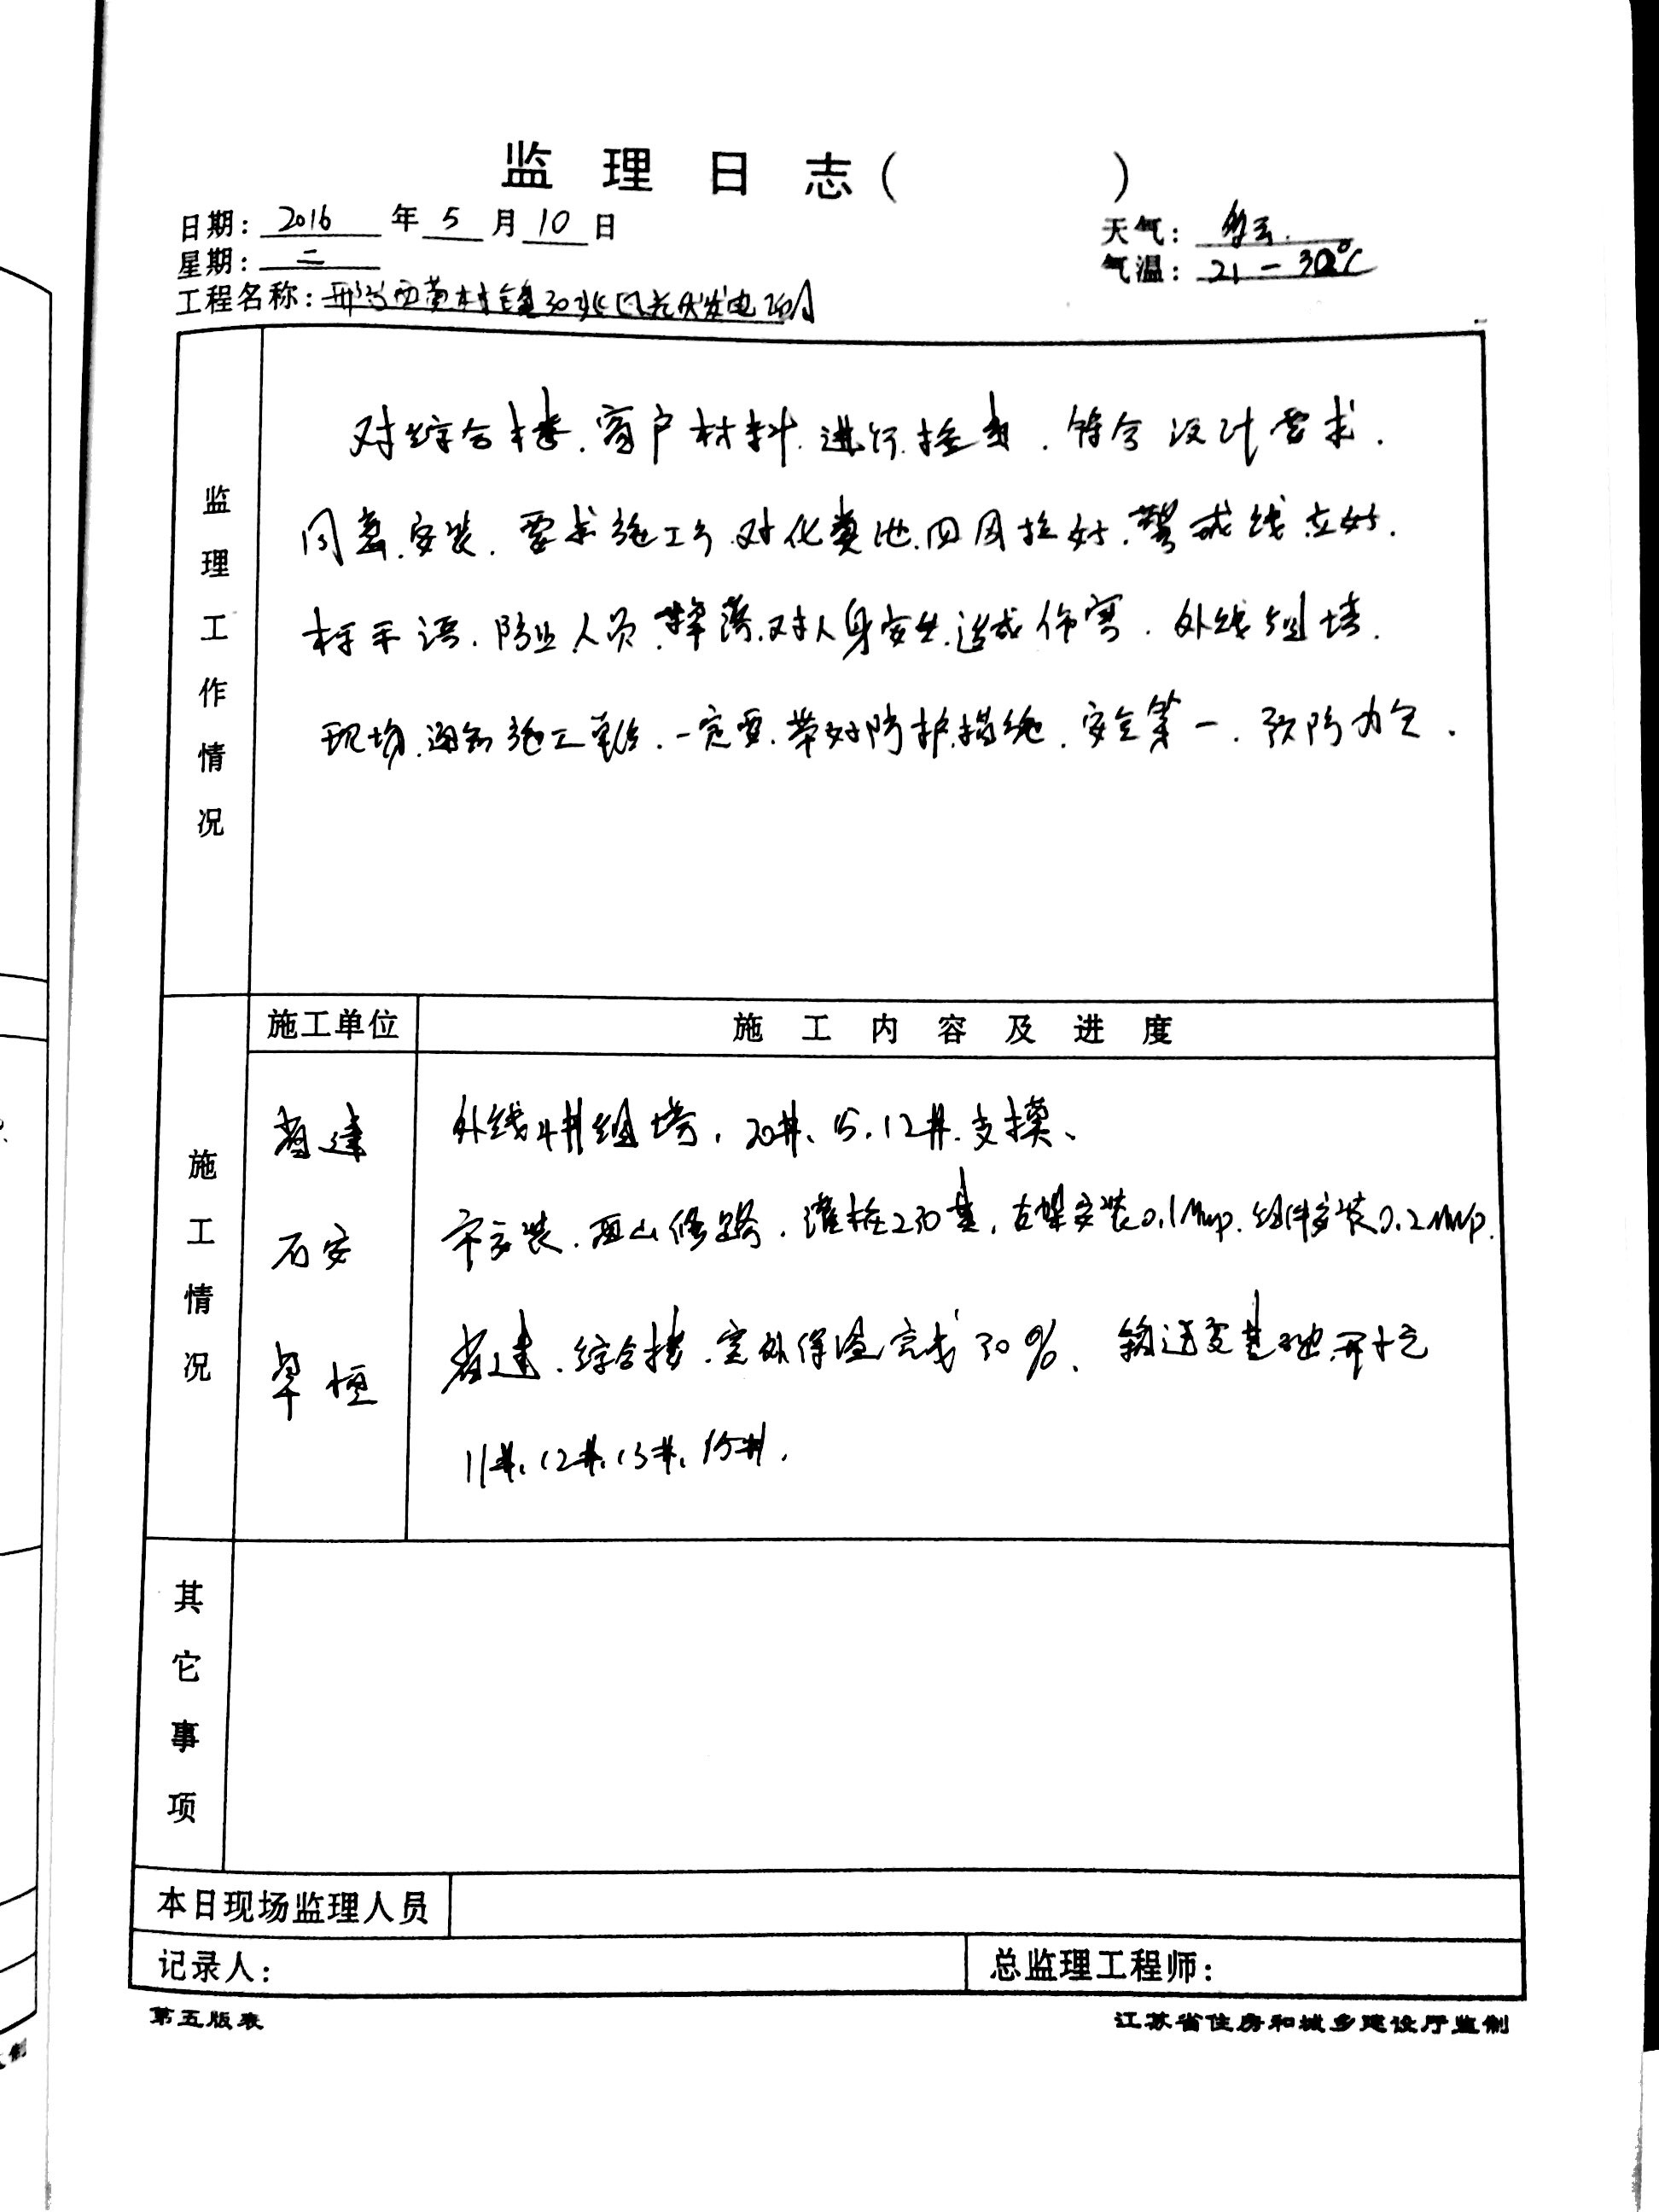 监理日志（ ）
日期：2016年5月10日 天气：多云.
星期：二 气温：21－30℃
工程名称：西黄村镇30 光伏发电项目
监理工作情况
对综合楼.窗户材料.进行.检查.符合设计要求.
同意.安装.要求施工 对化粪池.四周拉好.警戒线.立好.
标示语.防止人员.掉落.对人身安全.造成伤害.外线组塔.
现场.通知施工单位.一定要.带好防护措施.安全第一.预防为主.
施工情况
施工单位 施工内容及进度
省建 外线 组塔，20#、15、12#.支模、
石安 西山修路.灌桩230基，支架安装0.1Mwp.组件安装0.2Mwp.
恒 省建.综合楼.室外保温完成30%、箱逆变基础.开挖
11#、12#、13#、15#.
其它事项
本日现场监理人员
记录人： 总监理工程师：
第五版表 江苏省住房和城乡建设厅监制